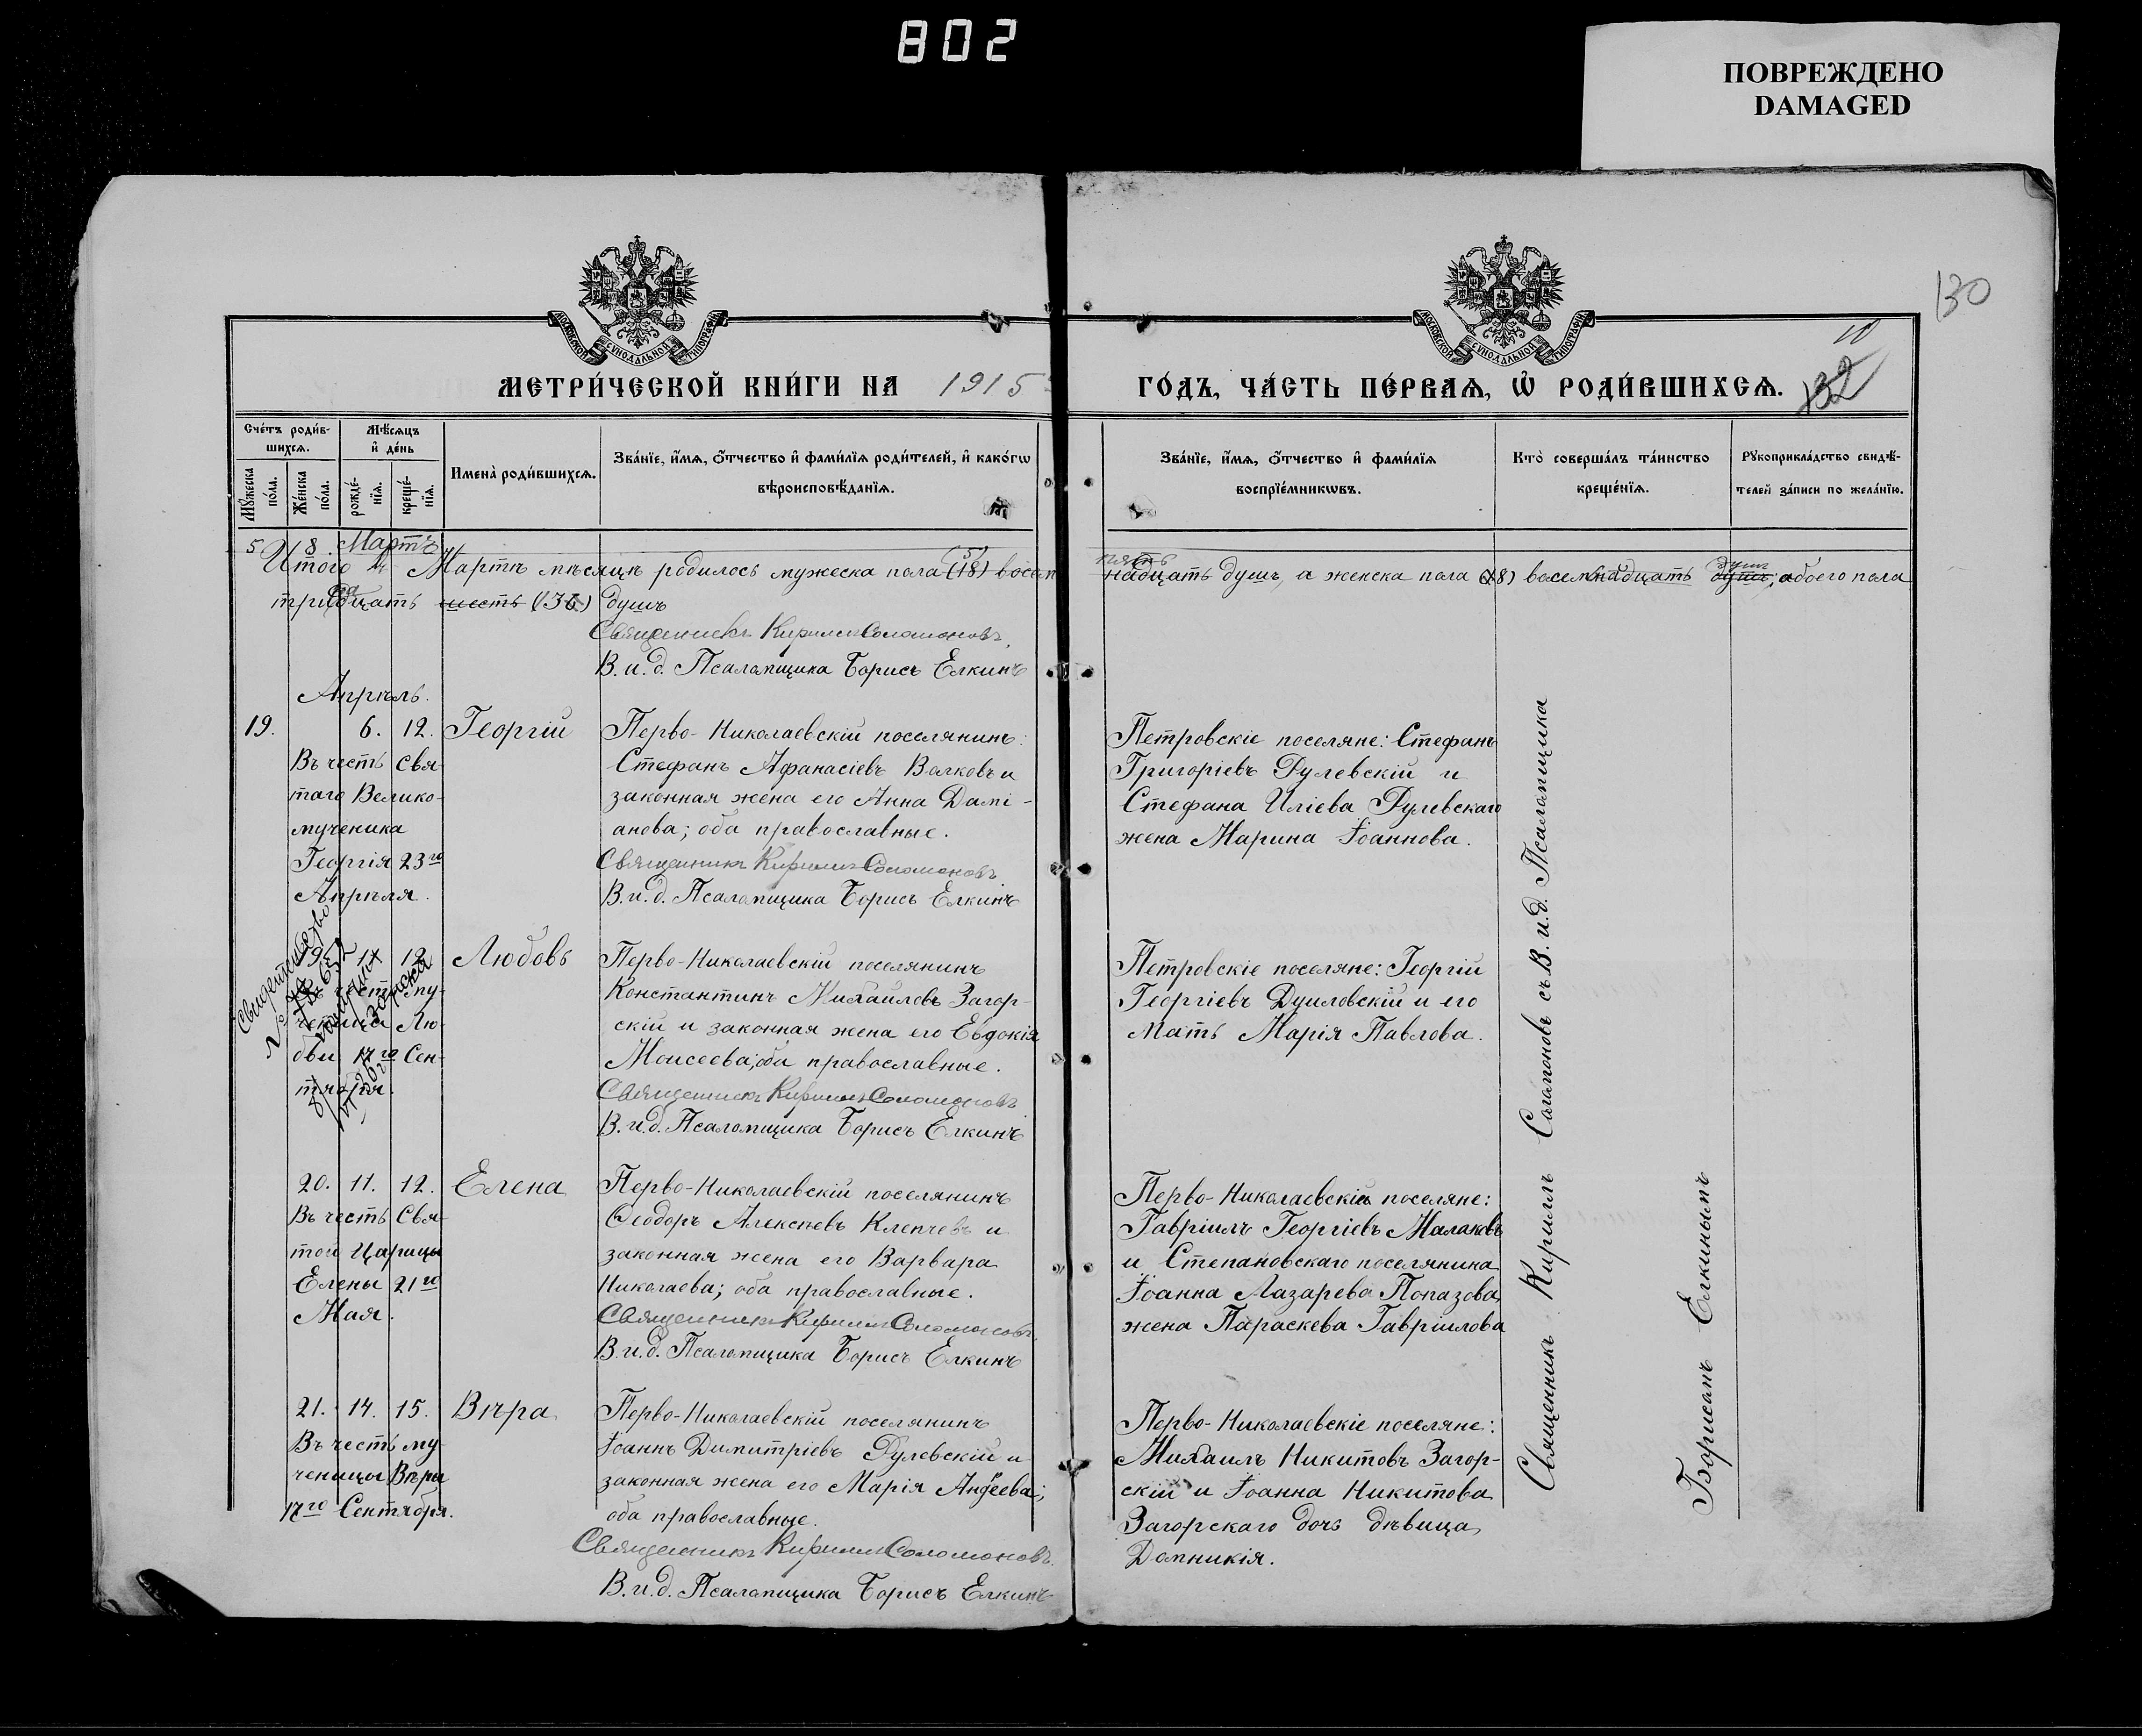 802
ПОВРЕЖДЕНО
DAMAGED
130
10
132
МОСКОВСКОЙ СѴНОДАЛЬНОЙ ТИПОГРАФІИ
МОСКОВСКОЙ СѴНОДАЛЬНОЙ ТИПОГРАФІИ
МЕТРИ́ЧЕСКОЙ КНИ́ГИ НА 1915
ГО́ДЪ, ЧА́СТЬ ПЕ́РВАѦ, Ѡ҆ РОДИ́ВШИХСѦ.
Сче́тъ роди́в-
шихсѧ.
Мꙋ́жеска
по́ла.
Же́нска
по́ла.
Мѣ́сѧцъ
и҆ де́нь
рожде́-
нїѧ.
креще́-
нїѧ.
Имена̀ роди́вшихсѧ.
Зва́нїе, и҆́мѧ, ѻ҆́тчество и҆ фами́лїѧ роди́телей, и҆ како́гѡ
вѣроисповѣ́данїѧ.
Зва́нїе, и҆́мѧ, ѻ҆́тчество и҆ фами́лїѧ
воспрїе́мникѡвъ.
Кто̀ соверша́лъ та́инство
креще́нїѧ.
Рꙋкоприкла́дство свидѣ́-
телей за́писи по жела́нїю.
5 8 Мартъ
Итого въ Мартѣ мѣсяцѣ родилось мужеска пола (18) восем
надцать душъ, а женска пола (18) восемнадцать душъ; обоего пола
пять
душ
тридцать шесть (36) душъ
Священникъ Кириллъ Соломоновъ.
В. и. д. Псаломщика Борисъ Елкинъ
Апрѣль.
19. 6. 12. Георгій
Въ честь Свя-
таго Велико-
мученика
Георгія 23го
Апрѣля.
Перво-Николаевскій поселянинъ:
Стефанъ Афанасіевъ Валковъ и
законная жена его Анна Дамі-
анова; оба православные.
Священникъ Кириллъ Соломоновъ
В. и. д. Псаломщика Борисъ Елкинъ
Петровскіе поселяне: Стефанъ
Григоріевъ Дулевскій и
Стефана Иліева Дулевскаго
жена Марина Іоаннова.
Свидетельство
12. Любовь
Въ честь му-
ченицы Лю-
бви 17го Сен-
тября.
Перво-Николаевскій поселянинъ
Константинъ Михаиловъ Загор-
скій и законная жена его Евдокія
Моисеева; оба православные.
Священникъ Кириллъ Соломоновъ
В. и. д. Псаломщика Борисъ Елкинъ
Петровскіе поселяне: Георгій
Георгіевъ Душловскій и его
мать Марія Павлова.
20. 11. 12. Елена
Въ честь Свя-
той Царицы
Елены 21го
Мая.
Перво-Николаевскій поселянинъ
Ѳеодоръ Алексѣевъ Клепчевъ и
законная жена его Варвара
Николаева; оба православные.
Священникъ Кириллъ Соломоновъ.
В. и. д. Псаломщика Борисъ Елкинъ
Перво-Николаевскіе поселяне:
Гавріилъ Георгіевъ Малаковъ
и Степановскаго поселянина
Іоанна Лазарева Попазова
жена Параскева Гавріилова
21. 14. 15. Вѣра
Въ честь му-
ченицы Вѣры
17го Сентября.
Перво-Николаевскій поселянинъ
Іоаннъ Димитріевъ Дулевскій и
законная жена его Марія Андреева;
оба православные.
Священникъ Кириллъ Соломоновъ.
В. и. д. Псаломщика Борисъ Елкинъ
Перво-Николаевскіе поселяне:
Михаилъ Никитовъ Загор-
скій и Іоанна Никитова
Загорскаго дочь дѣвица
Домникія.
Священникъ Кириллъ Соломоновъ съ В. и. д. Псаломщика
Борисомъ Елкинымъ